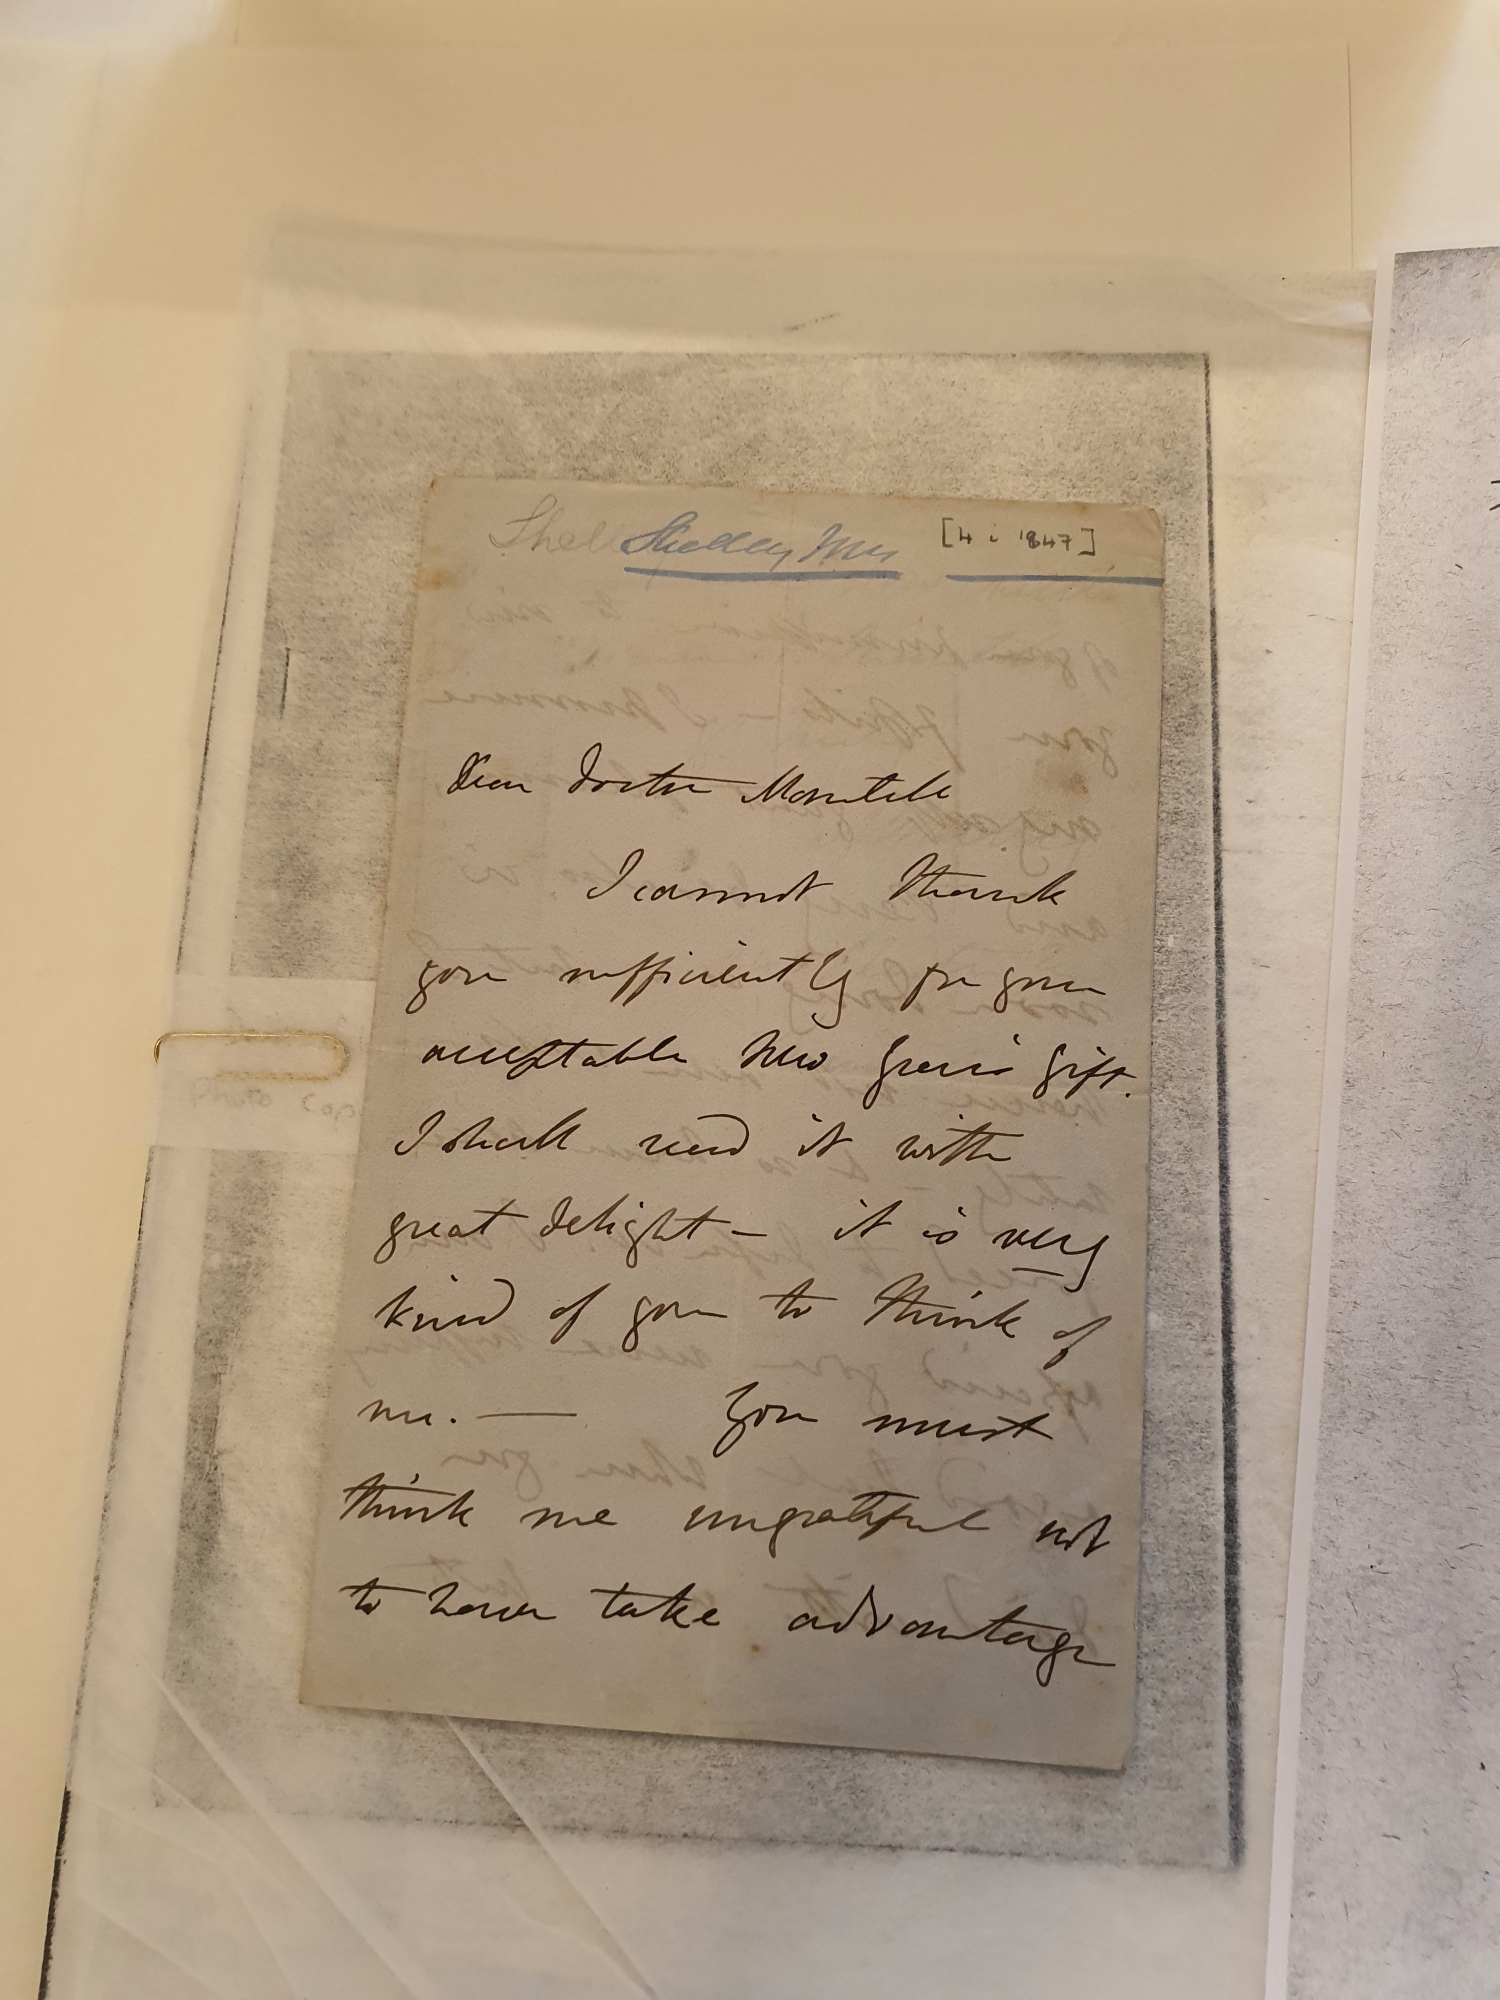 Shel Shelley Mrs [4 i 1847]
Dear Doctor Mantell
I cannot thank
you sufficiently for your
acceptable New Year's gift.
I shall read it with
great delight — it is very
kind of you to think of
me. — You must
think me ungrateful not
to have take advantage
Photo Cop